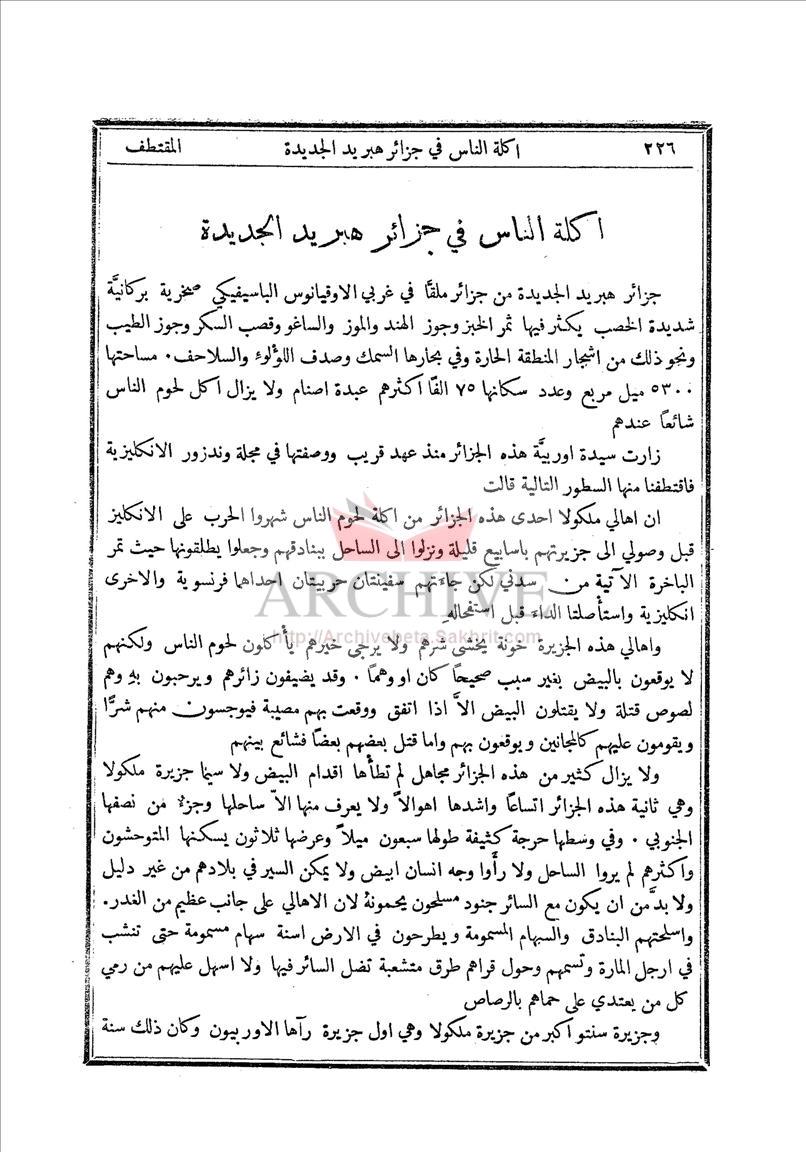 ٢٢٦ اكلة الناس في جزائر هبريد الجديدة المقتطف
اكلة الناس في جزائر هبريد الجديدة
جزائر هبريد الجديدة من جزائر ملقَّا في غربي الاوقيانوس الباسيفيكي صخرية بركانيَّة
شديدة الخصب يكثر فيها ثمر الخبز وجوز الهند والموز والساغو وقصب السكر وجوز الطيب
ونحو ذلك من اشجار المنطقة الحارة وفي بحارها السمك وصدف اللؤلوء والسلاحف . مساحتها
٥٣٠٠ ميل مربع وعدد سكانها ٧٥ الفًا اكثرهم عبدة اصنام ولا يزال اكل لحوم الناس
شائعًا عندهم
زارت سيدة اوربيَّة هذه الجزائر منذ عهد قريب ووصفتها في مجلة وندزور الانكليزية
فاقتطفنا منها السطور التالية قالت
ان اهالي ملكولا احدى هذه الجزائر من اكلة لحوم الناس شهروا الحرب على الانكليز
قبل وصولي الى جزيرتهم باسابيع قليلة ونزلوا الى الساحل ببنادقهم وجعلوا يطلقونها حيث تمر
الباخرة الآتية من سدني لكن جاءتهم سفينتان حربيتان احداهما فرنسوية والاخرى
انكليزية واستأصلتا الداء قبل استفحاله
ARCHIVE
http://Archivebeta.Sakhrit.com
واهالي هذه الجزيرة خونة يخشى شرهم ولا يرجى خيرهم يأكلون لحوم الناس ولكنهم
لا يوقعون بالبيض بغير سبب صحيحاً كان او وهماً . وقد يضيفون زائرهم ويرحبون به وهم
لصوص قتلة ولا يقتلون البيض الاَّ اذا اتفق ووقعت بهم مصيبة فيوجسون منهم شرًّا
ويقومون عليهم كالمجانين ويوقعون بهم واما قتل بعضهم بعضاً فشائع بينهم
ولا يزال كثير من هذه الجزائر مجاهل لم تطأها اقدام البيض ولا سيما جزيرة ملكولا
وهي ثانية هذه الجزائر اتساعاً واشدها اهوالاً ولا يعرف منها الاّ ساحلها وجزء من نصفها
الجنوبي . وفي وسطها حرجة كثيفة طولها سبعون ميلاً وعرضها ثلاثون يسكنها المتوحشون
واكثرهم لم يروا الساحل ولا رأوا وجه انسان ابيض ولا يمكن السير في بلادهم من غير دليل
ولا بدَّ من ان يكون مع السائر جنود مسلحون يحمونهُ لان الاهالي على جانب عظيم من الغدر .
واسلحتهم البنادق والسهام المسمومة ويطرحون في الارض اسنة سهام مسمومة حتى تنشب
في ارجل المارة وتسمهم وحول قراهم طرق متشعبة تضل السائر فيها ولا اسهل عليهم من رمي
كل من يعتدي على حماهم بالرصاص
وجزيرة سنتو اكبر من جزيرة ملكولا وهي اول جزيرة رآها الاوربيون وكان ذلك سنة